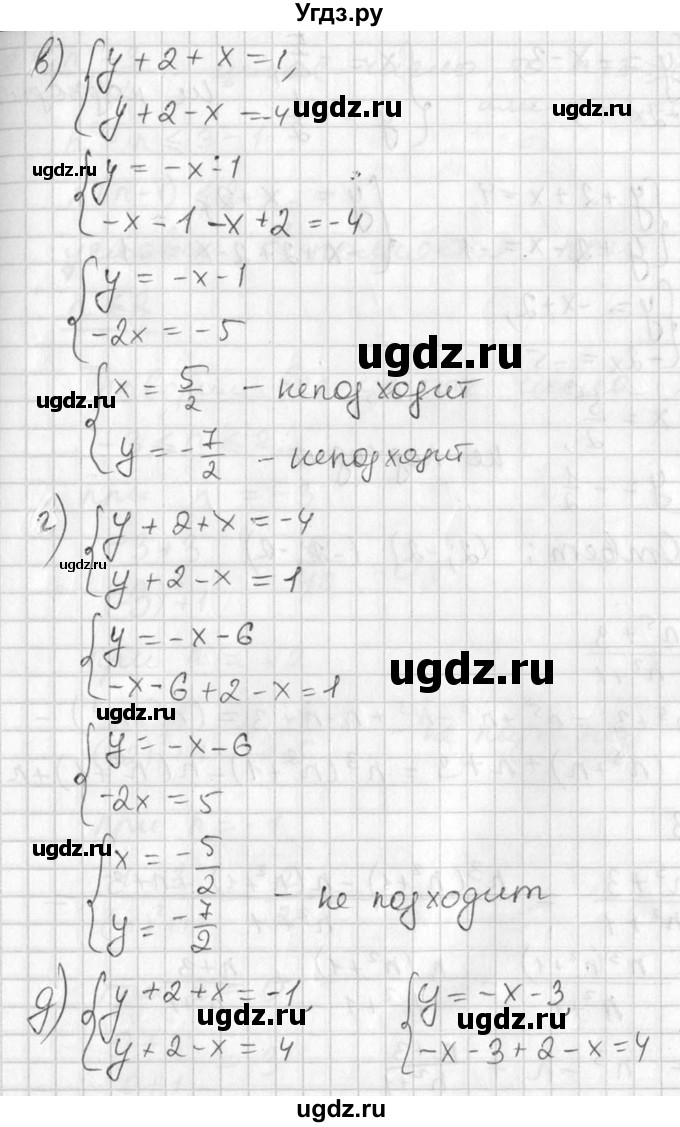 Угдз.ру
в) { y + 2 + x = 1,
y + 2 - x = -4
ugdz.ru
ugdz.ru
ugdz.ru
{ y = -x - 1
-x - 1 - x + 2 = -4
{ y = -x - 1
-2x = -5
ugdz.ru
{ x = 5/2 - не подходит
ugdz.ru
y = -7/2 - не подходит
г) { y + 2 + x = -4
y + 2 - x = 1
ugdz.ru
{ y = -x - 6
-x - 6 + 2 - x = 1
ugdz.ru
ugdz.ru
{ y = -x - 6
-2x = 5
ugdz.ru
{ x = -5/2
y = -7/2
- не подходит
д) { y + 2 + x = -1
y + 2 - x = 4
{ y = -x - 3,
-x - 3 + 2 - x = 4
ugdz.ru
ugdz.ru
ugdz.ru